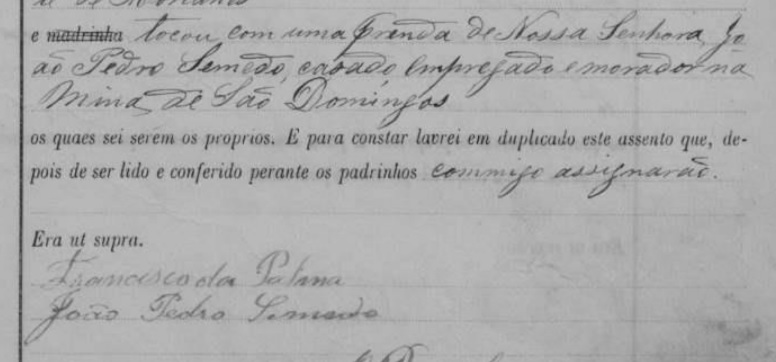 e madrinha tocou com uma prenda de Nossa Senhora, Jo
ão Pedro Semedo, casado, empregado e morador na
Mina de São Domingos
os quaes sei serem os proprios. E para constar lavrei em duplicado este assento que, de-
pois de ser lido e conferido perante os padrinhos commigo assignarão.
Era ut supra.
Francisco da Palma
João Pedro Semedo